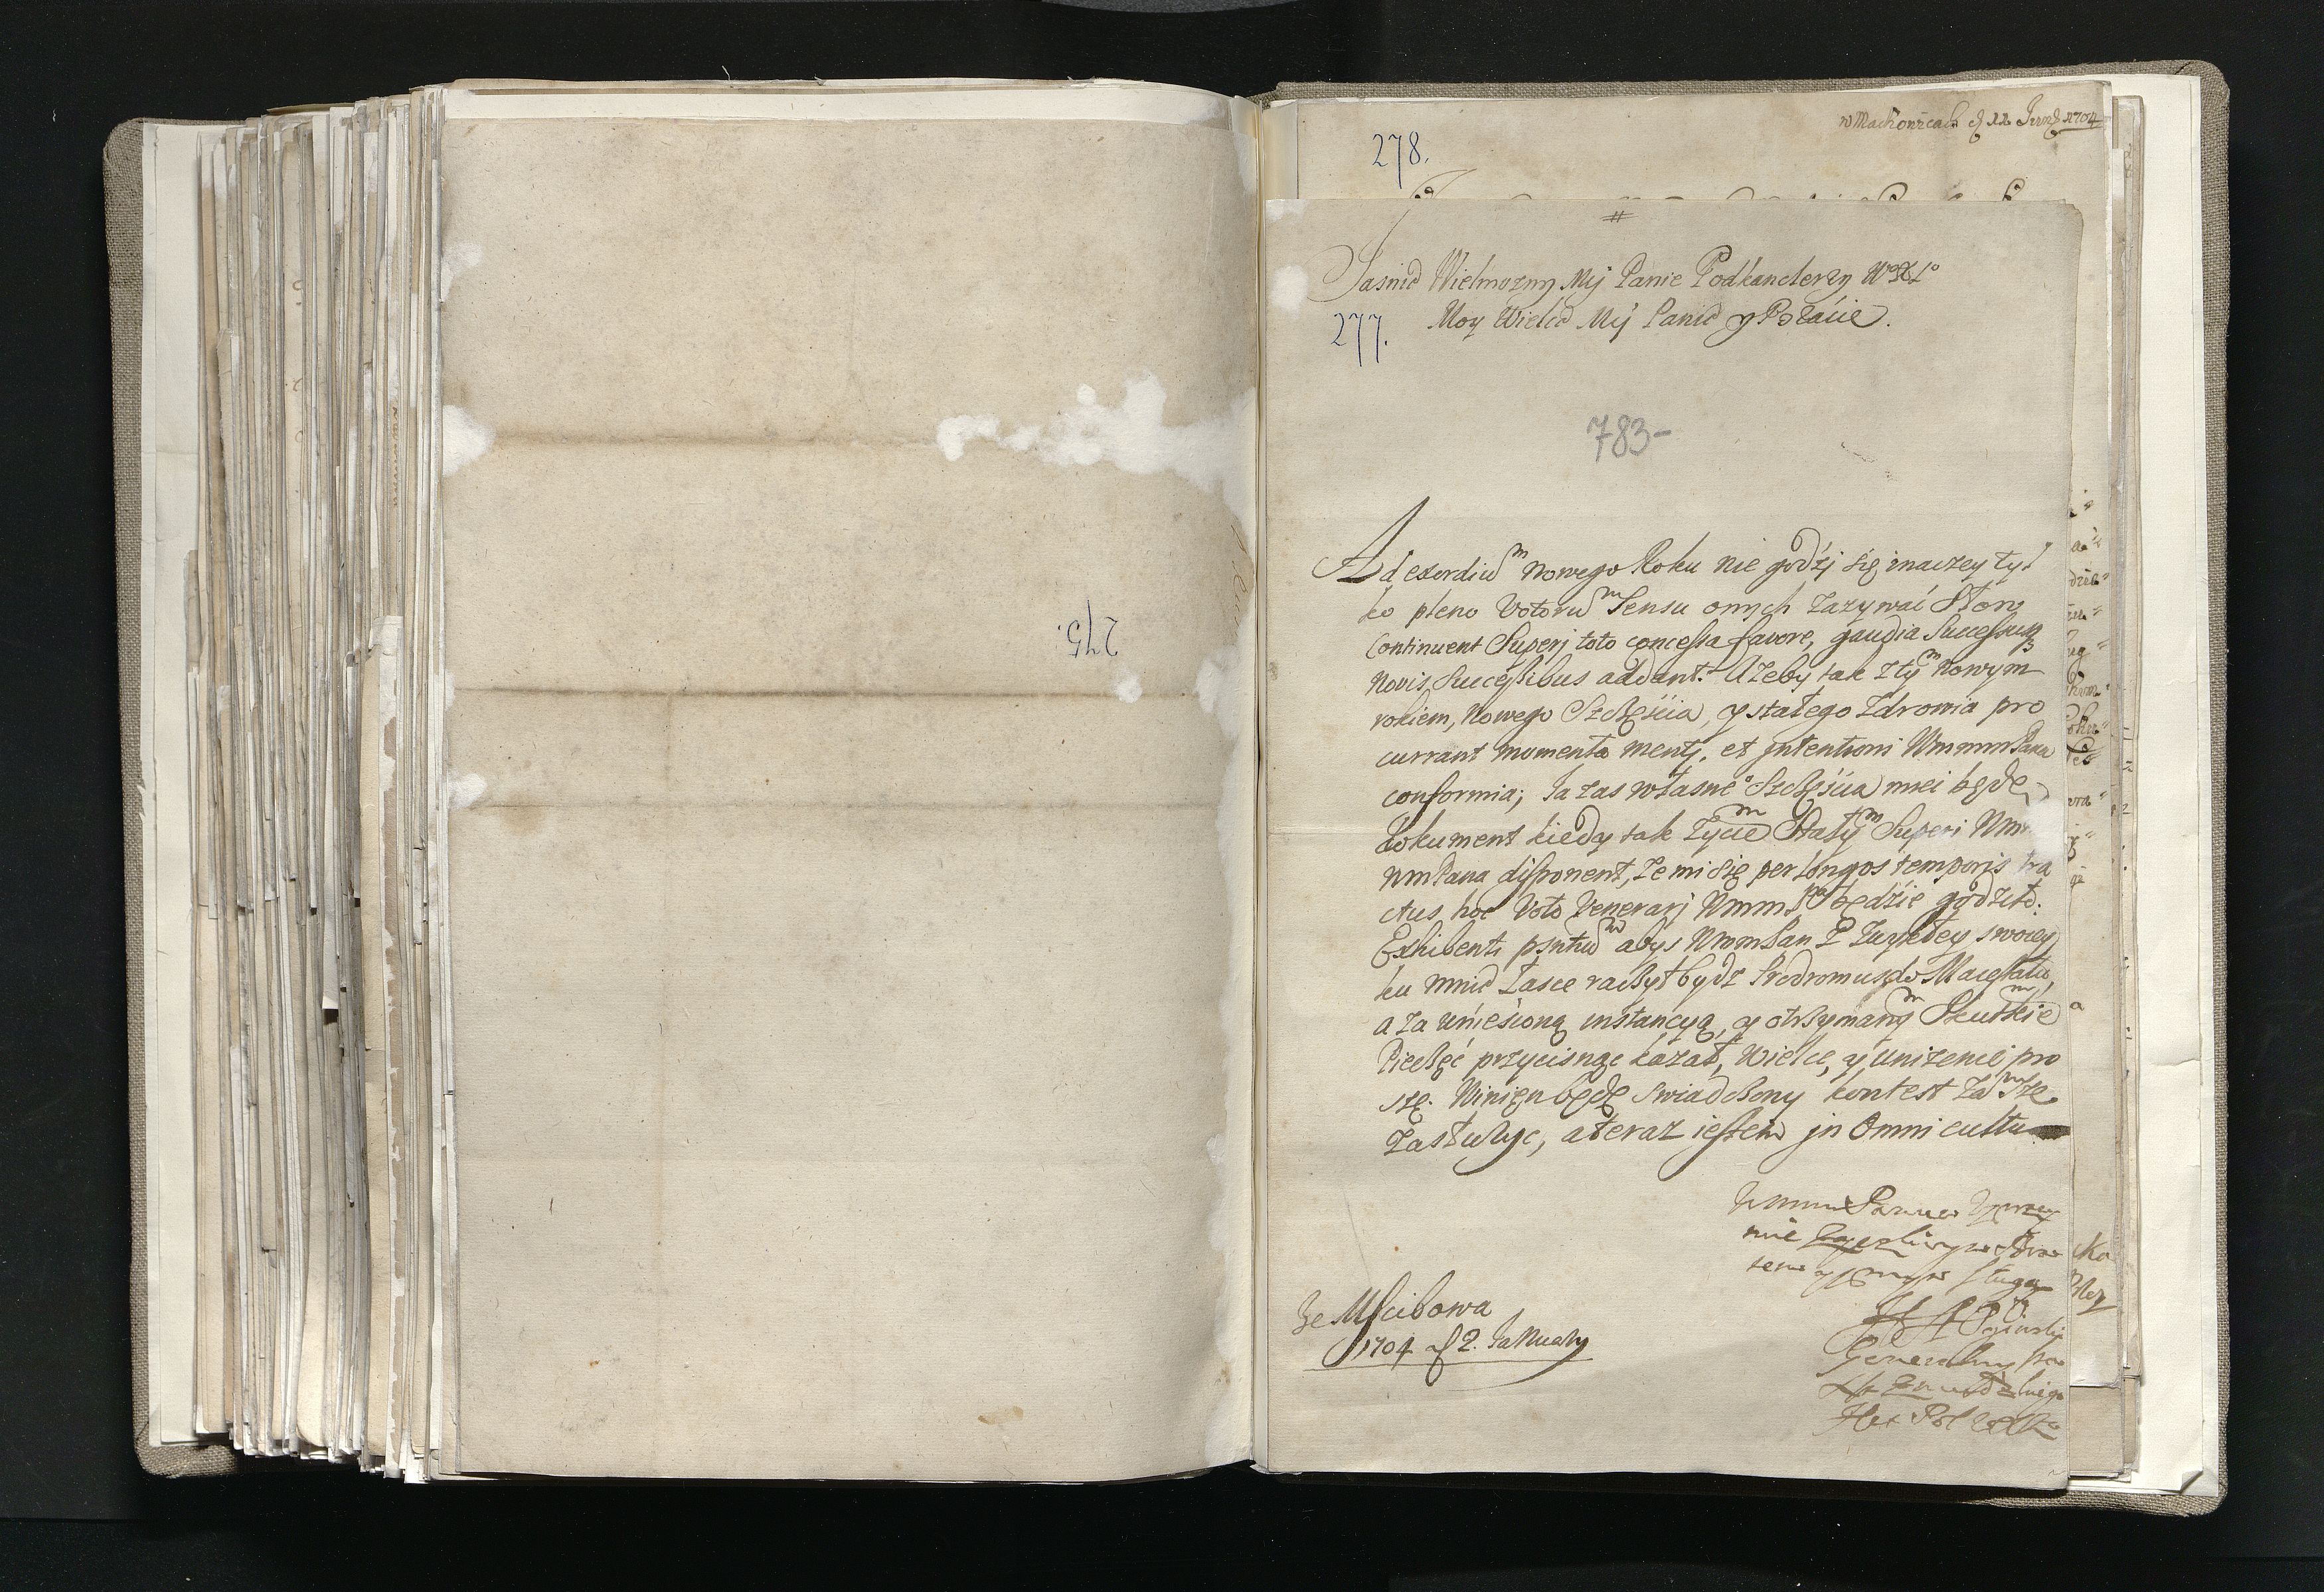 275.
w Machowicach d 22
1704
278.
#
Jasnie Wielmozny Mẏ Panie Podkanclerzy WoXLo
Moy Wielce Mẏ Panie y Bracie.
277.
783-
Ad exordiu^m Nowego Roku nie godzi się inaczey tyl
ko pleno Votoru^m Sensu onych Zazywać Słow
Continuent Superj toto concessa favore, gaudia Successusq
Novis Successibus addant. Ażeby tak z ty^m Nowym
rokiem, Nowego Szczęścia, y stałego Zdrowia pro
currant momenta menti, et jntentioni WmmmPana
conformia; Ja zas własne° Szczęścia miei będę
dokument kiedy tak Życie^m Stały^m Superi Wm
mPana disponent, że mi się per longos temporis tra
ctus hoc Voto Venerarj Wmm Pa będzie godziło.
Exhibenti pśntiu^m abys WmmPan Z Zupełney swoiey
ku mnie Łasce raczył bydz Prodromus do Maiestatu,
a za wniesioną instancyą, y otrzymany^m Skutkie^m
Pieczęć przycisnąc kazał, Wielce, y uniżenie pro
szę. Winien będę swiadczony kontest Zawsze
Zasłużyc, a teraz iestem jn Omni cultu
WmmmPana Uprzey
mie Zyczliwym Bra
tem y sługą
Ze Mscibowa
1704 d 2. January
Ogiński
Generalny Sta
Xa Zmudzkiego
Het Pol WXL